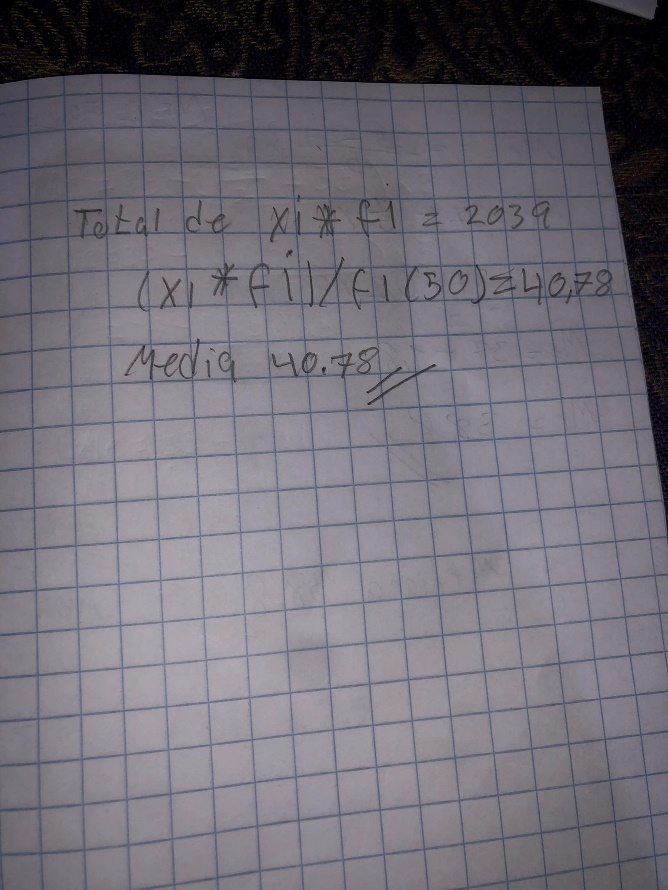 Total de xi * f1 = 2039
(xi * fi)/f1(50)=40,78
Media 40.78